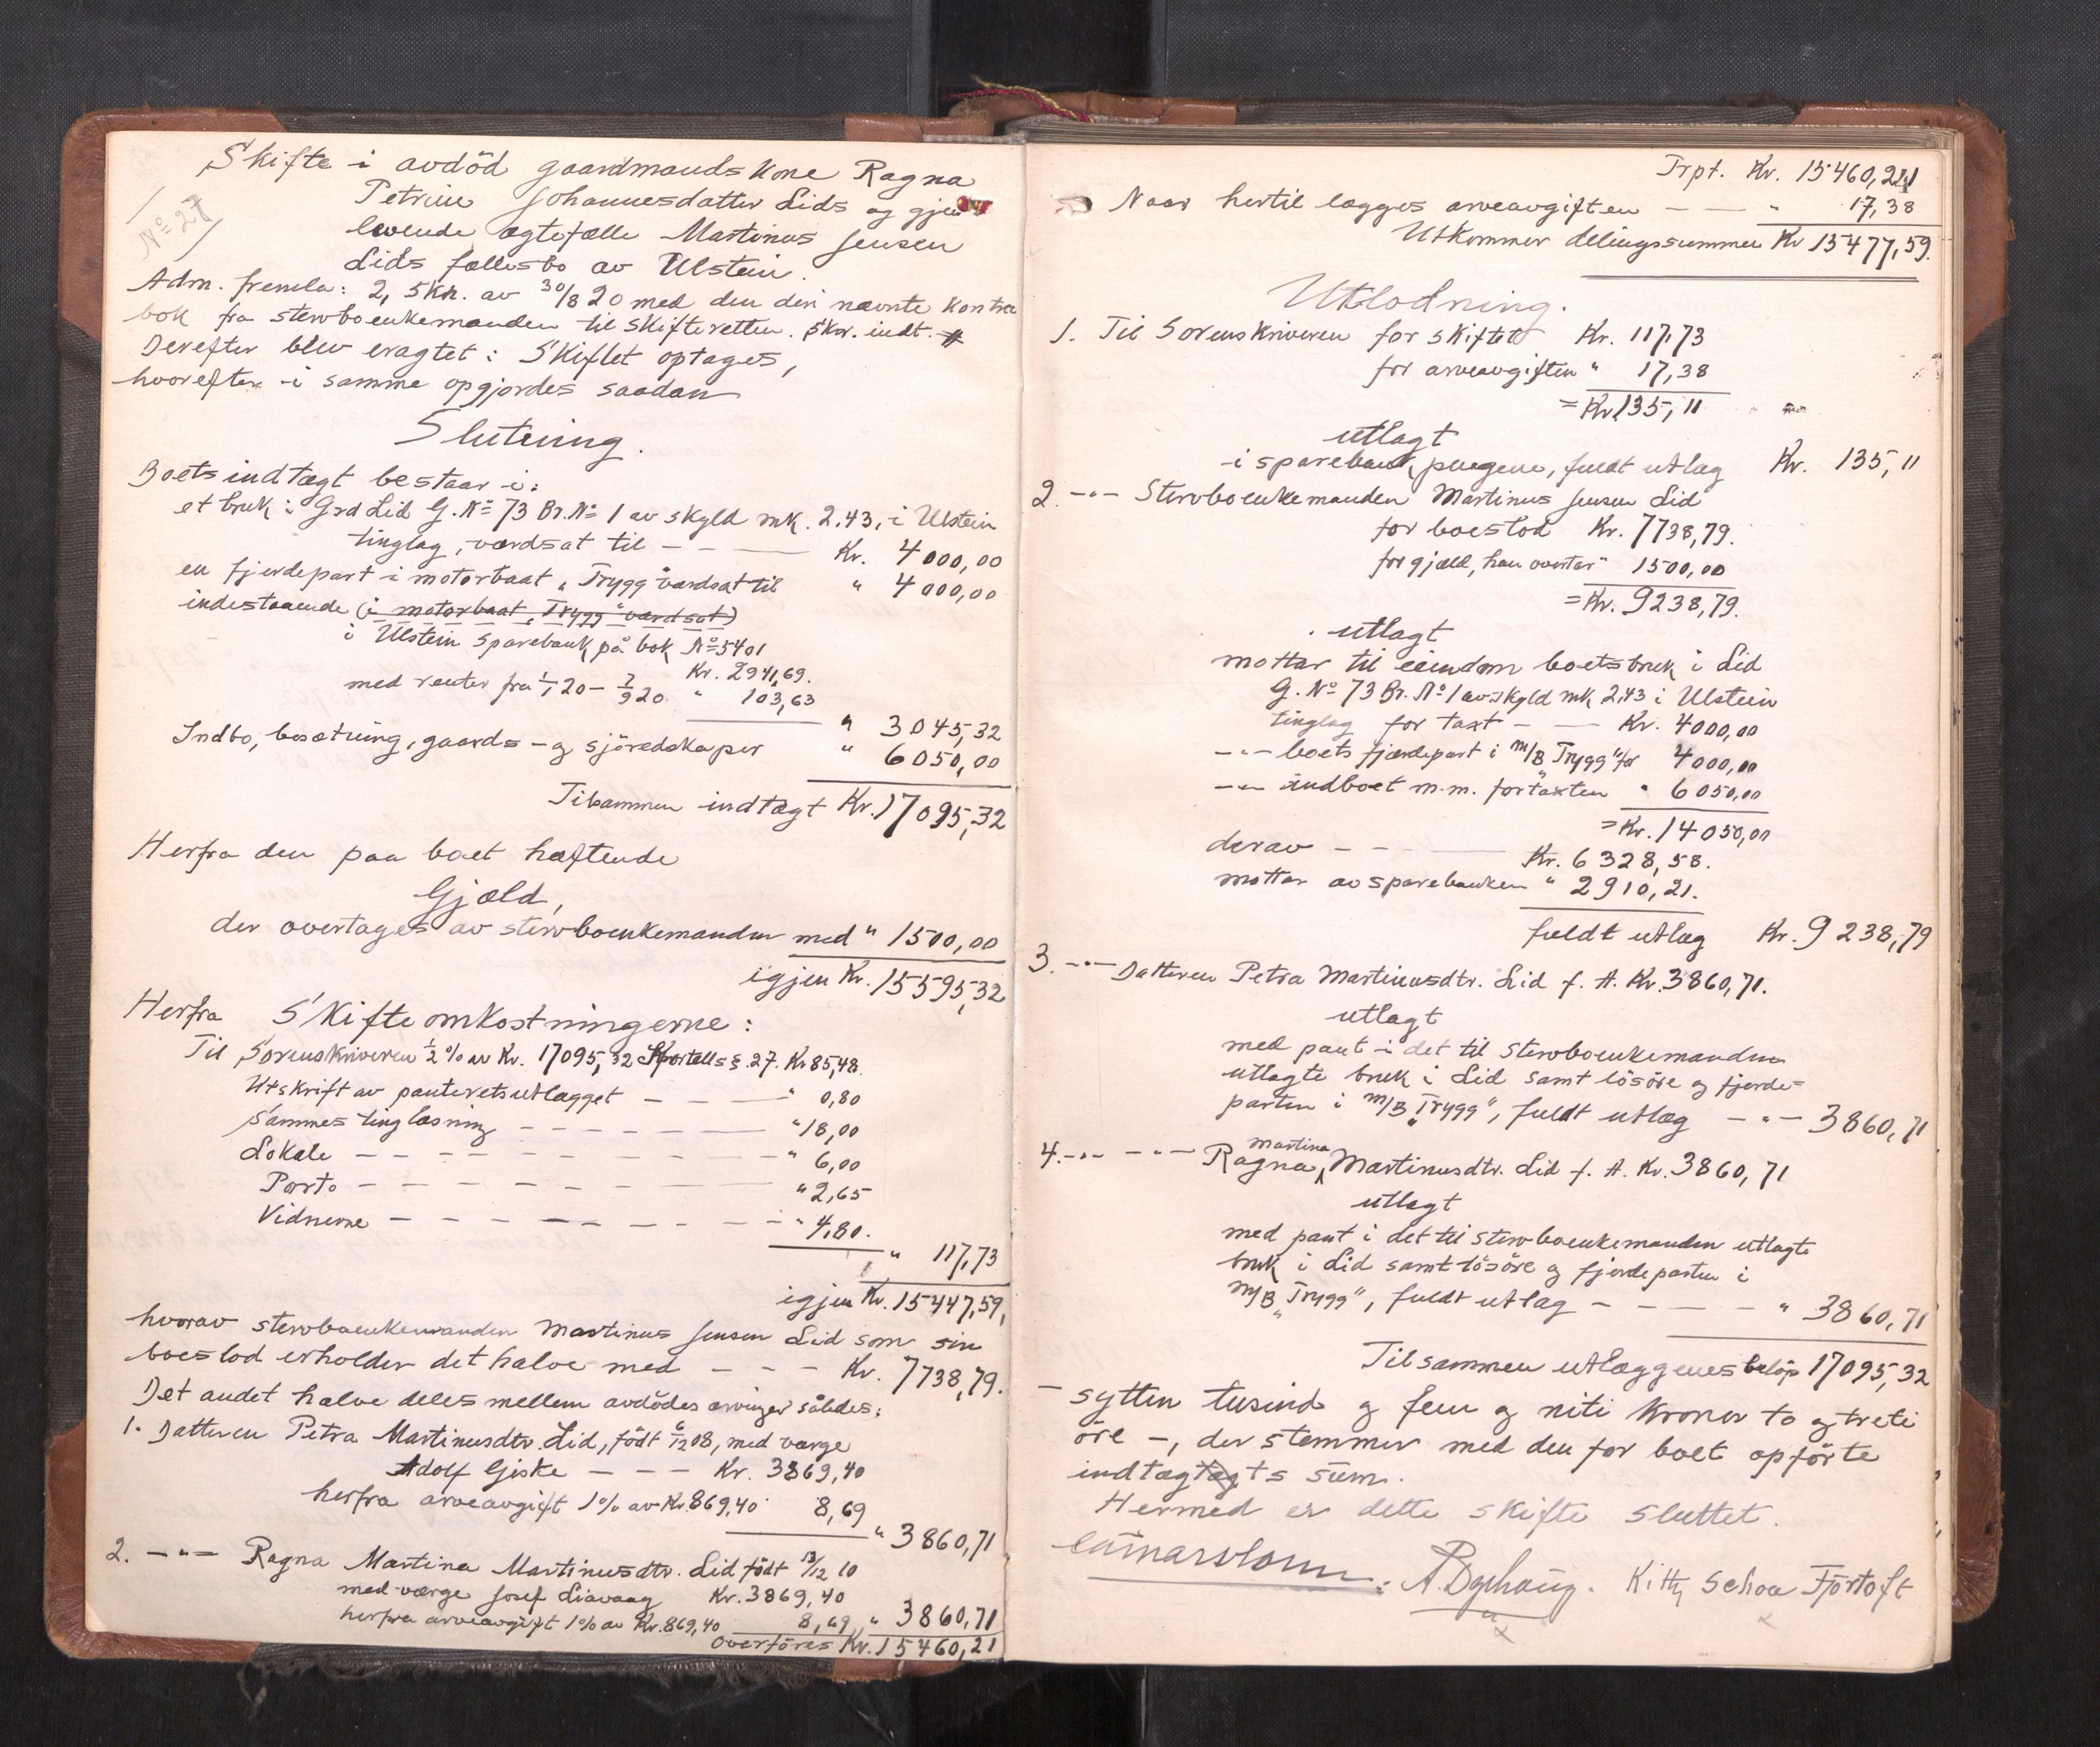 Skifte i avdöd gaardmands kone Ragna
Petrine Johannesdatter Lids og gjen-
levende ægtefælle Martinus Jensen
Lids fællesbo av Ulstein.
No 27
Adm. fremla: 2, Skr. av 30/8 20 med den deri nævnte kontra
bok fra stervboenkemanden til skifteretten. Skr. indt. #
Derefter blev eragtet: Skiftet optages,
hvorefter i samme opgjordes saadan
Slutning.
Boets indtægt bestaar i:
et bruk i Grd Lid G. No 73 Br. No 1 av skyld mk. 2.43, i Ulstein
tinglag, værdsat til - - — Kr. 4000,00
en fjerdepart i motorbaat „Trygg" værdsat til " 4000,00
indestaaende (i motorbaat „Trygg" værdsat)
i Ulstein Sparebank på bok No 5401
Kr. 2941,69.
med renter fra 1/1 20 - 7/9 20. " 103,63
" 3045,32
Indbo, besætning, gaards- og sjöredskaper " 6050,00
Tilsammen indtægt Kr. 17095,32
Herfra den paa boet hæftende
Gjæld,
der overtages av stervboenkemanden med " 1500,00
igjen Kr. 15595,32
Herfra Skifteomkostningerne:
Til Sorenskriveren 1/2 % av Kr. 17095,32 Sportells § 27. Kr 85,48.
Utskrift av panteretsutlægget - - — " 0,80
Sammes tinglæsning - - - - - — " 18,00
Lokale - - - - - - - - " 6,00
Porto - - - - - - — " 2,65
Vidnerne - - - - - - - - " 4,80.
" 117,73
igjen Kr. 15447,59,
hvorav stervboenkemanden Martinus Jensen Lid som sin
boeslod erholder det halve med - - - Kr. 7738,79.
Det andet halve deles mellem avdödes arvinger således:
1. Datteren Petra Martinusdtr. Lid, födt 6/12 08, med værge
Adolf Giske - - - Kr. 3869,40
herfra arveavgift 1% av Kr. 869,40 8,69
" 3860,71
2. -"- Ragna Martina Martinusdtr. Lid födt 13/12 10
med værge Josef Liavaag Kr. 3869,40
herfra arveavgift 1% av Kr. 869,40 8,69 " 3860,71
Overföres Kr. 15460,21
Trpt. Kr. 15460,21
Naar hertil lægges arveavgiften - — " 17,38
Utkommer delingssummen Kr 15477,59.
Utlodning.
1. Til Sorenskriveren for skiftet Kr. 117,73
for arveavgiften " 17,38
= Kr. 135,11
utlagt
i sparebankpengene, fuldt utlæg Kr. 135,11
2. -"- Stervboenkemanden Martinus Jensen Lid
for boeslod Kr. 7738,79.
for gjæld, han overtar " 1500,00
= Kr. 9238,79.
utlagt
mottar til eiendom boets bruk i Lid
G. No 73 Br. No 1 av skyld mk 2.43 i Ulstein
tinglag for taxt - — Kr. 4000,00
-"- boets fjærdepart i M/B „Trygg" for 4000,00
-"- indboet m.m. for taxten " 6050,00
= Kr. 14050,00
derav - - — Kr. 6328,58.
mottar av sparebanken " 2910,21.
fuldt utlæg Kr. 9238,79
3. -"- Datteren Petra Martinusdtr. Lid f. A. Kr. 3860,71.
utlagt
med pant i det til stervboenkemanden
utlagte bruk i Lid samt lösöre og fjerde=
parten i M/B „Trygg", fuldt utlæg -"- 3860,71
4. -"- -"- Ragna Martina Martinusdtr. Lid f. A. Kr. 3860,71
utlagt
med pant i det til stervboenkemanden utlagte
bruk i Lid samt lösöre og fjerdeparten i
M/B „Trygg", fuldt utlæg - - - - " 3860,71
Tilsammen utlæggenes belöp 17095,32
- sytten tusind og fem og niti kroner to og treti
öre -, der stemmer med den for boet opförte
indtægtægts sum.
Hermed er dette skifte sluttet.
Kitty Schoa Fjörtoft